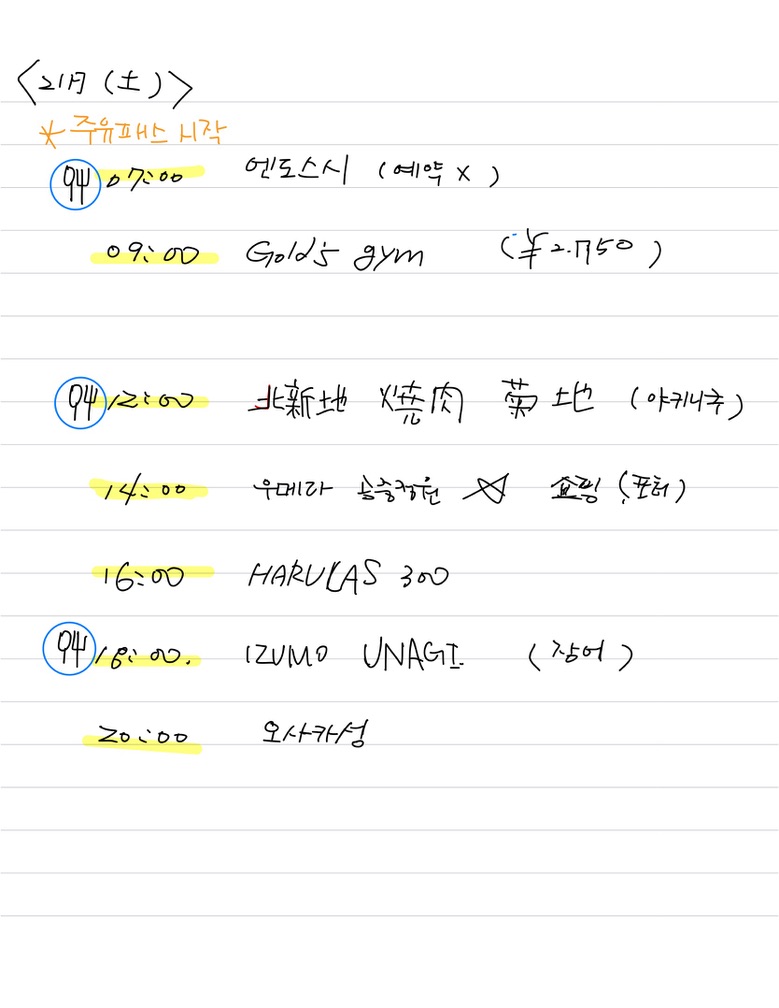 <21日 (土)>
* 주유패스 시작
07:00 엔도스시 (예약 X)
09:00 Gold's gym (¥2.750)
12:00 北新地 焼肉 菊地 (야키니쿠)
14:00 우메다 공중정원 쇼핑 (포터)
16:00 HARUKAS 300
18:00. IZUMO UNAGI (장어)
20:00 오사카성